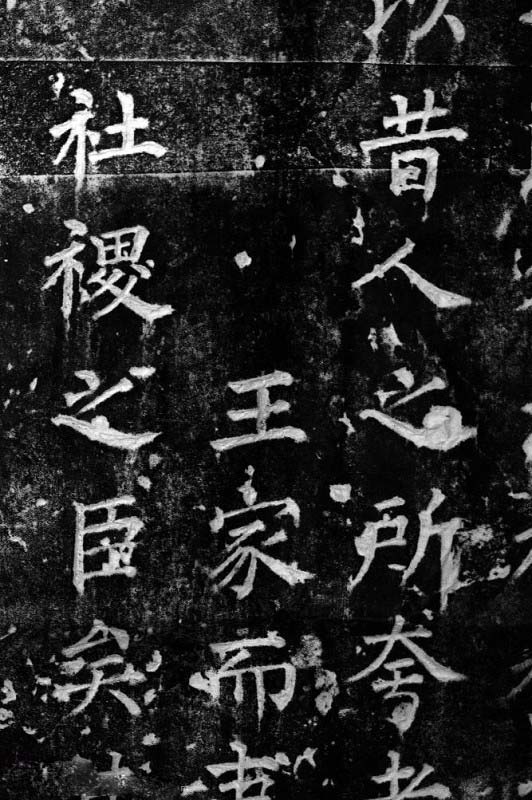 以昔人之所夸者
王家而
社禝之臣矣